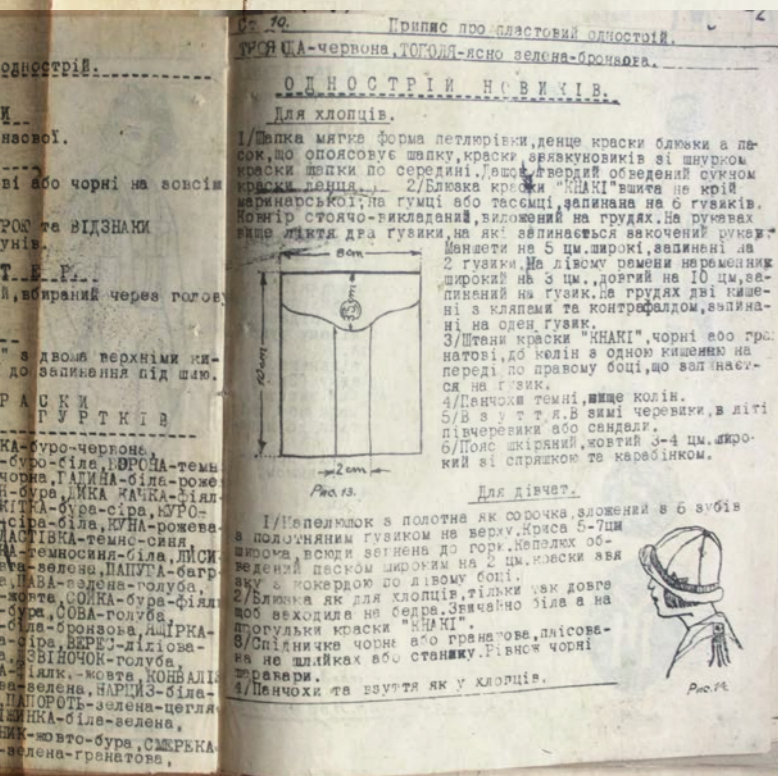 однострій.
И
нзової.
ві або чорні на зовсім
РОЮ та ВІДЗНАКИ
унів.
Т Е Р.
й,вбираний через голову
" з двома верхніми ки-
до запинання під шию.
Р А С К И
Г У Р Т К І В
КА-буро-червона,
-буро-біла,ВОРОНА-темн
чорна,ГАДИНА-біла-роже
н-бура,ДИКА КАЧКА-фіял
КІТКА-бура-сіра,КУРО-
-сіра-біла,КУНА-рожева-
ЛАСТІВКА-темно-синя
НА-темносиня-біла,ЛИСИ
вта-зелена,ПАПУГА-багр
а,ПАВА-зелена-голуба,
-жовта,СОЙКА-бура-фіял
-бура,СОВА-голуба,
-біла-бронзова,ЯЩІРКА-
а-сіра,ВЕРЕС-ліліова-
а,ДЗВІНОЧОК-голуба,
А-фіялк.-жовта,КОНВАЛІЯ
ва-зелена,НАРЦИЗ-біла-
,ПАПОРОТЬ-зелена-цегля
ЖИНКА-біла-зелена,
НИК-жовто-бура,СМЕРЕКА
-зелена-гранатова,
Ст 10. Припис про пластовий однострій. 2
ТРОЯНДА-червона,ТОПОЛЯ-ясно зелена-бронзова.
О Д Н О С Т Р І Й Н О В И К І В.
Для хлопців.
1/Шапка мягка форма петлюрівки,денце краски блюзки а па-
сок,що опоясовує шапку,краски звязкуновиків зі шнурком
краски шапки по середині.Дашок твердий обведений сукном
краски денця. 2/Блюзка краски "КНАКІ"вшита на крій
маринарської,на гумці або тасємці,запинана на 6 гузиків.
Ковнір стоячо-викладаний,виложений на грудях.На рукавах
вище ліктя два гузики,на які запинається закочений рукав.
Маншети на 5 цм.широкі,запинані на
2 гузики.На лівому рамени нараменник
широкий на 3 цм.,довгий на 10 цм,за-
пинаний на гузик.На грудях дві кише-
ні з кляпами та контрафалдом,запина-
ні на оден гузик.
3/Штани краски "КНАКІ",чорні або гра-
натові,до колін з одною кишенню на
переді по правому боці,що запинаєт-
ся на гузик.
4/Панчохи темні,вище колін.
5/В з у т т я.В зимі черевики,в літі
півчеревики або сандали.
6/Пояс шкіряний,жовтий 3-4 цм.широ-
кий зі спряшкою та карабінком.
8cm
3,5cm
10cm
2cm
Рис.13.
Для дівчат.
1/Капелюшок з полотна як сорочка,зложений з 6 зубів
з полотняним гузиком на верху.Криса 5-7цм
широка,всюди загнена до гори.Капелюх об-
ведений паском широким на 2 цм.краски звя
зку з кокардою по лівому боці.
2/Блюзка як для хлопців,тільки так довга
щоб заходила на бедра.Звичайно біла а на
прогульки краски "КНАКІ".
3/Спідничка чорна або гранатова,плісова-
на на шлийках або станику.Рівнож чорні
шаравари.
4/Панчохи та взуття як у хлопців.
Рис.14.